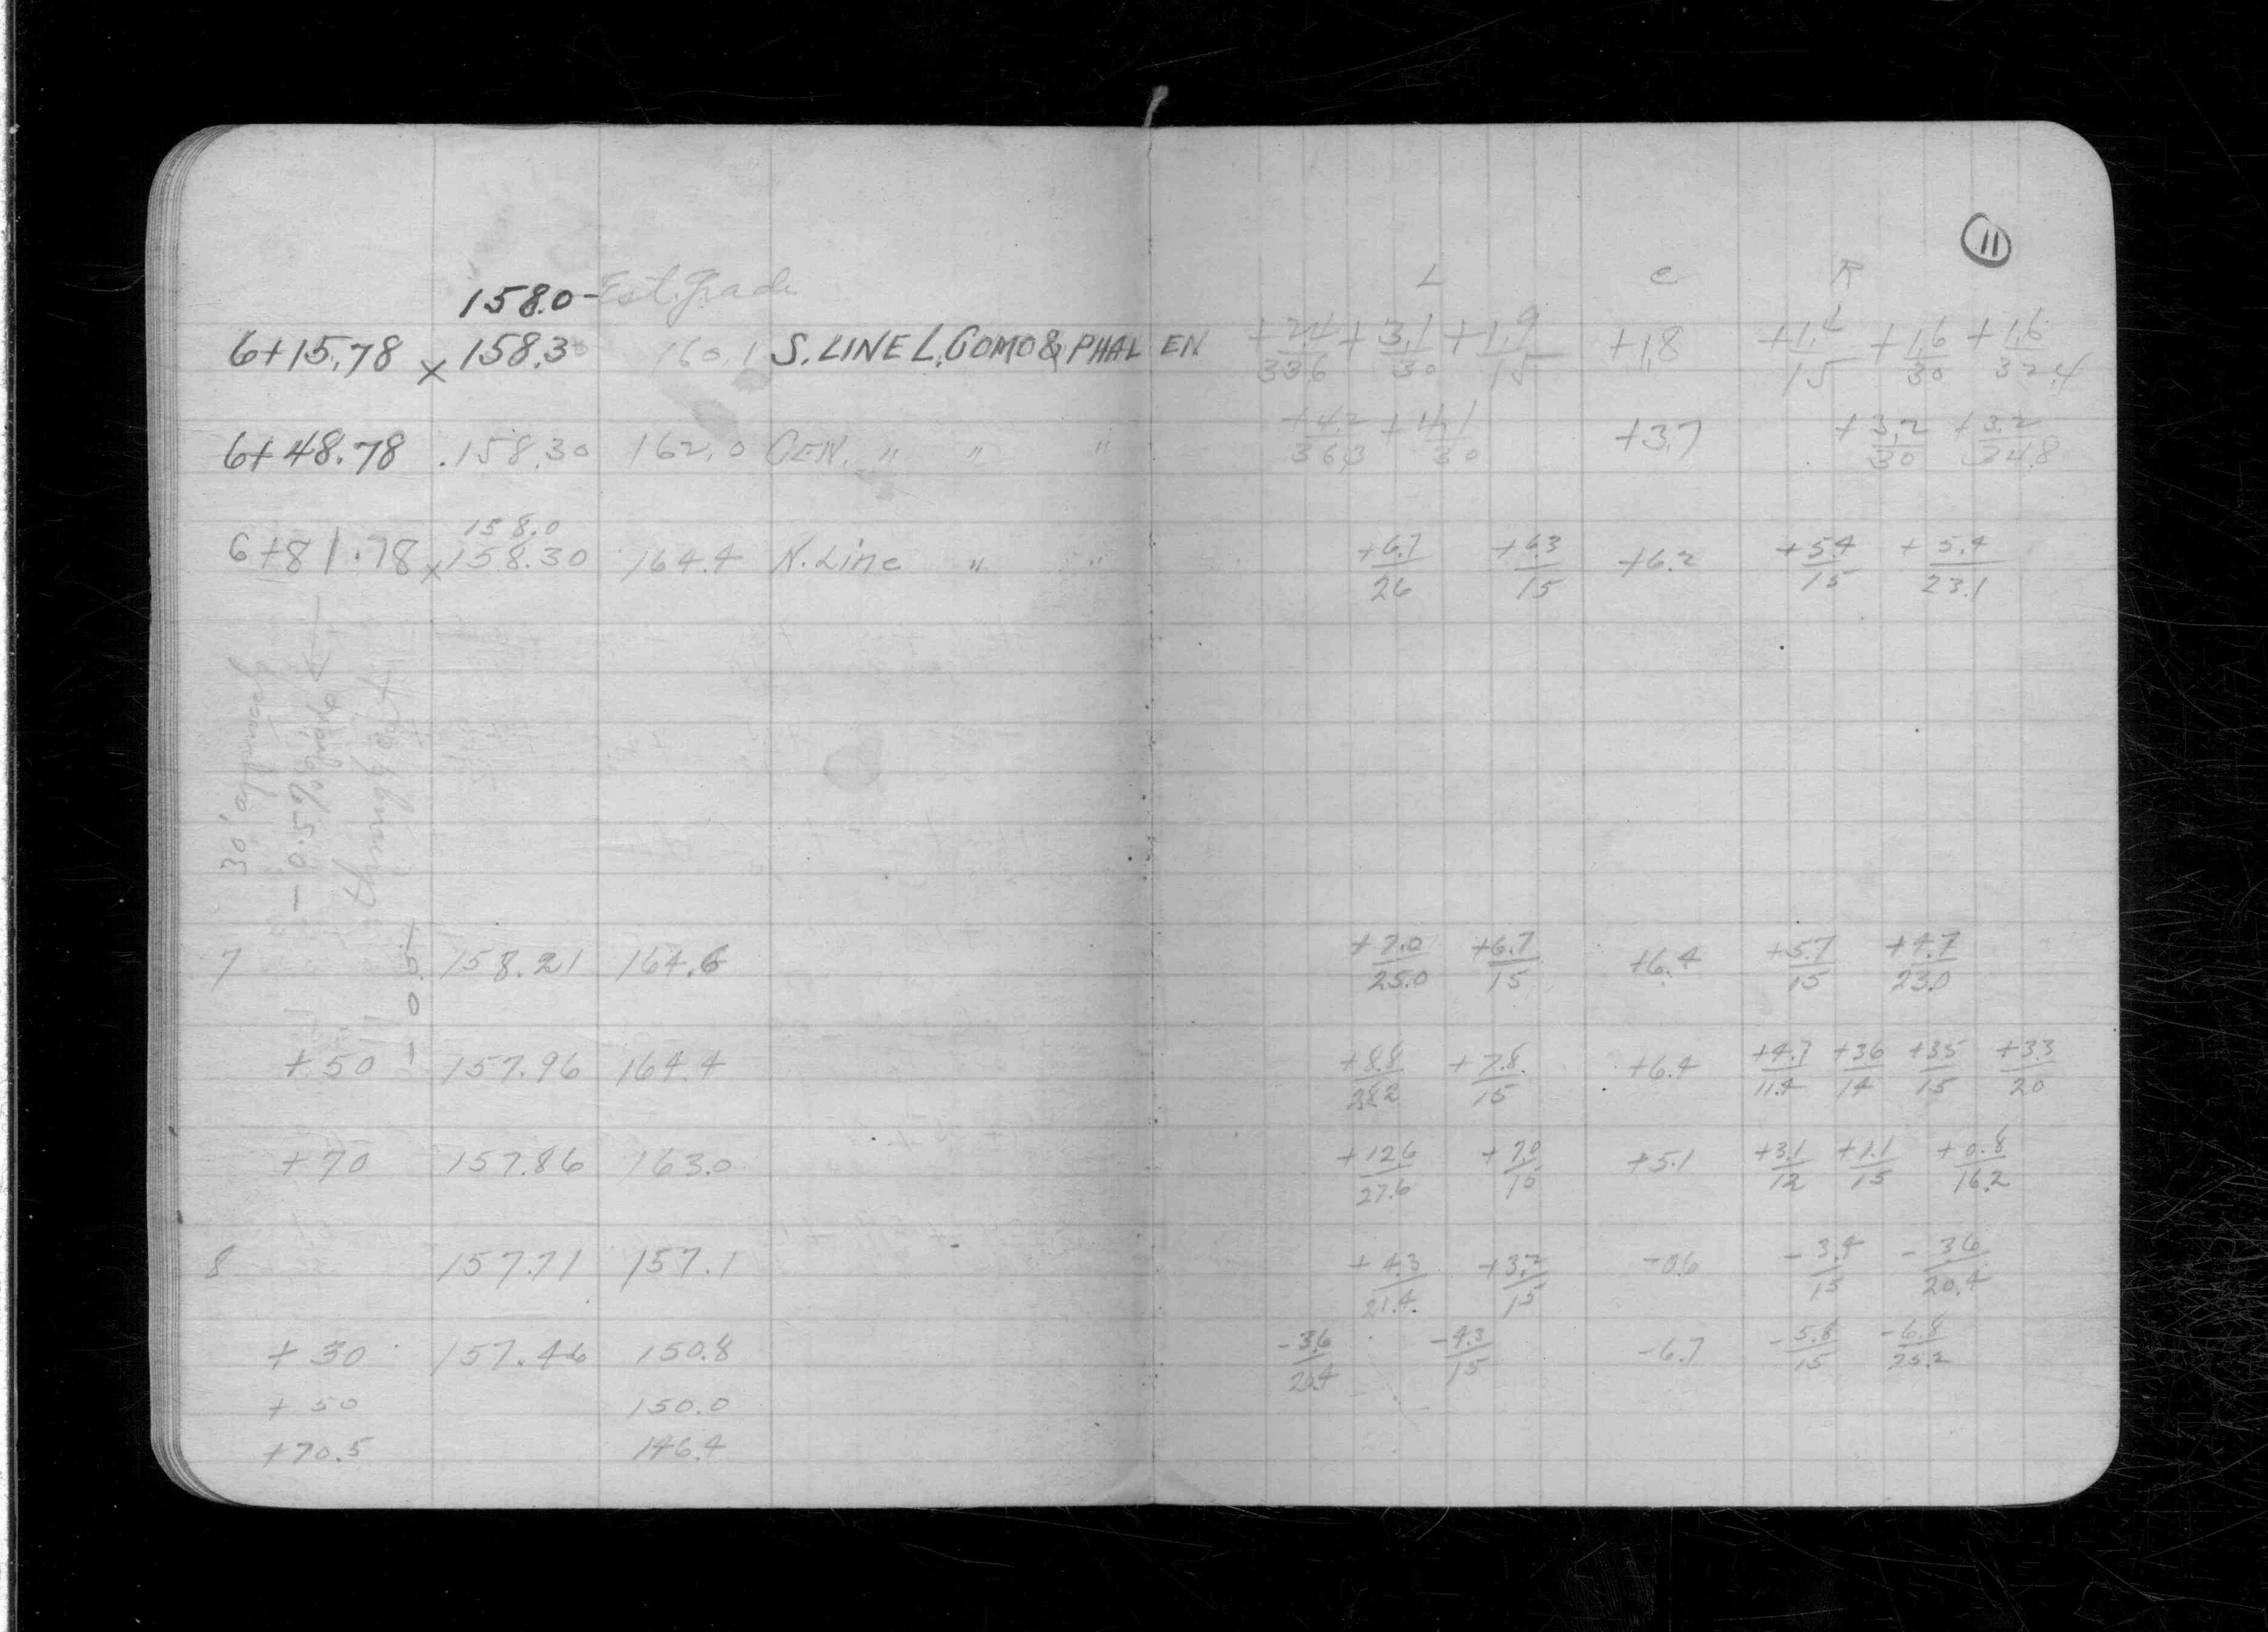 11
L C R
158.0 - Est. Grade
6+15.78 x 158.30 160.1 S. LINE L. COMO & PHALEN +2.4/33.6 +3.1/30 +1.9/15 +1.8 +1.4/15 +1.6/30 +1.6/32.4
6+48.78 .158.30 162.0 CEN. " " " +4.2/36.3 +4.1/30 +3.7 +3.2/30 +3.2/34.8
158.0
6+81.78 x 158.30 164.4 N. Line " " +6.7/26 +6.3/15 +6.2 +5.4/15 +5.4/23.1
30' approach
- 0.5% grade
throughout
- 0.5
7 158.21 164.6 +7.0/25.0 +6.7/15 +6.4 +5.7/15 +4.7/23.0
+50 157.96 164.4 +8.8/28.2 +7.8/15 +6.4 +4.7/11.4 +3.6/14 +3.5/15 +3.3/20
+70 157.86 163.0 +12.6/27.6 +7.0/15 +5.1 +3.1/12 +1.1/15 +0.8/16.2
8 157.71 157.1 +4.3/21.4 +3.2/15 -0.6 -3.4/15 -3.6/20.4
+30 157.46 150.8 -3.6/20.4 -4.3/15 -6.7 -5.8/15 -6.8/25.2
+50 150.0
+70.5 146.4